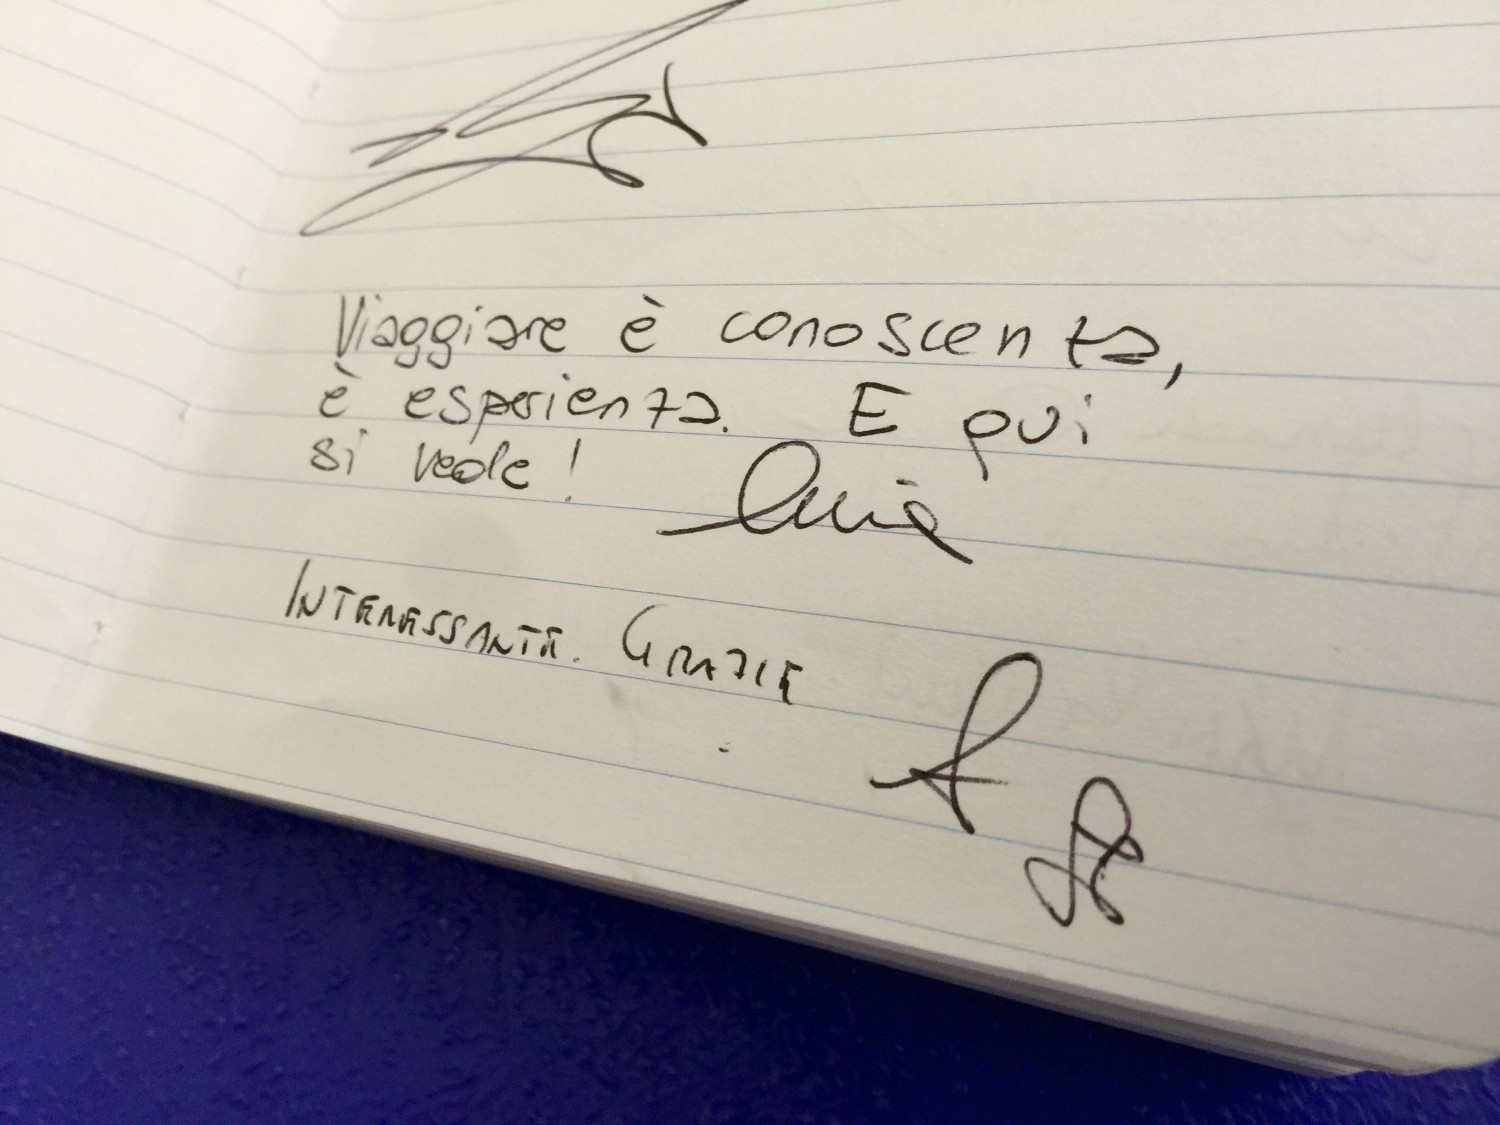 Viaggiare è conoscenza,
è esperienza. E qui
si vede!
INTERESSANTE. GRAZIE